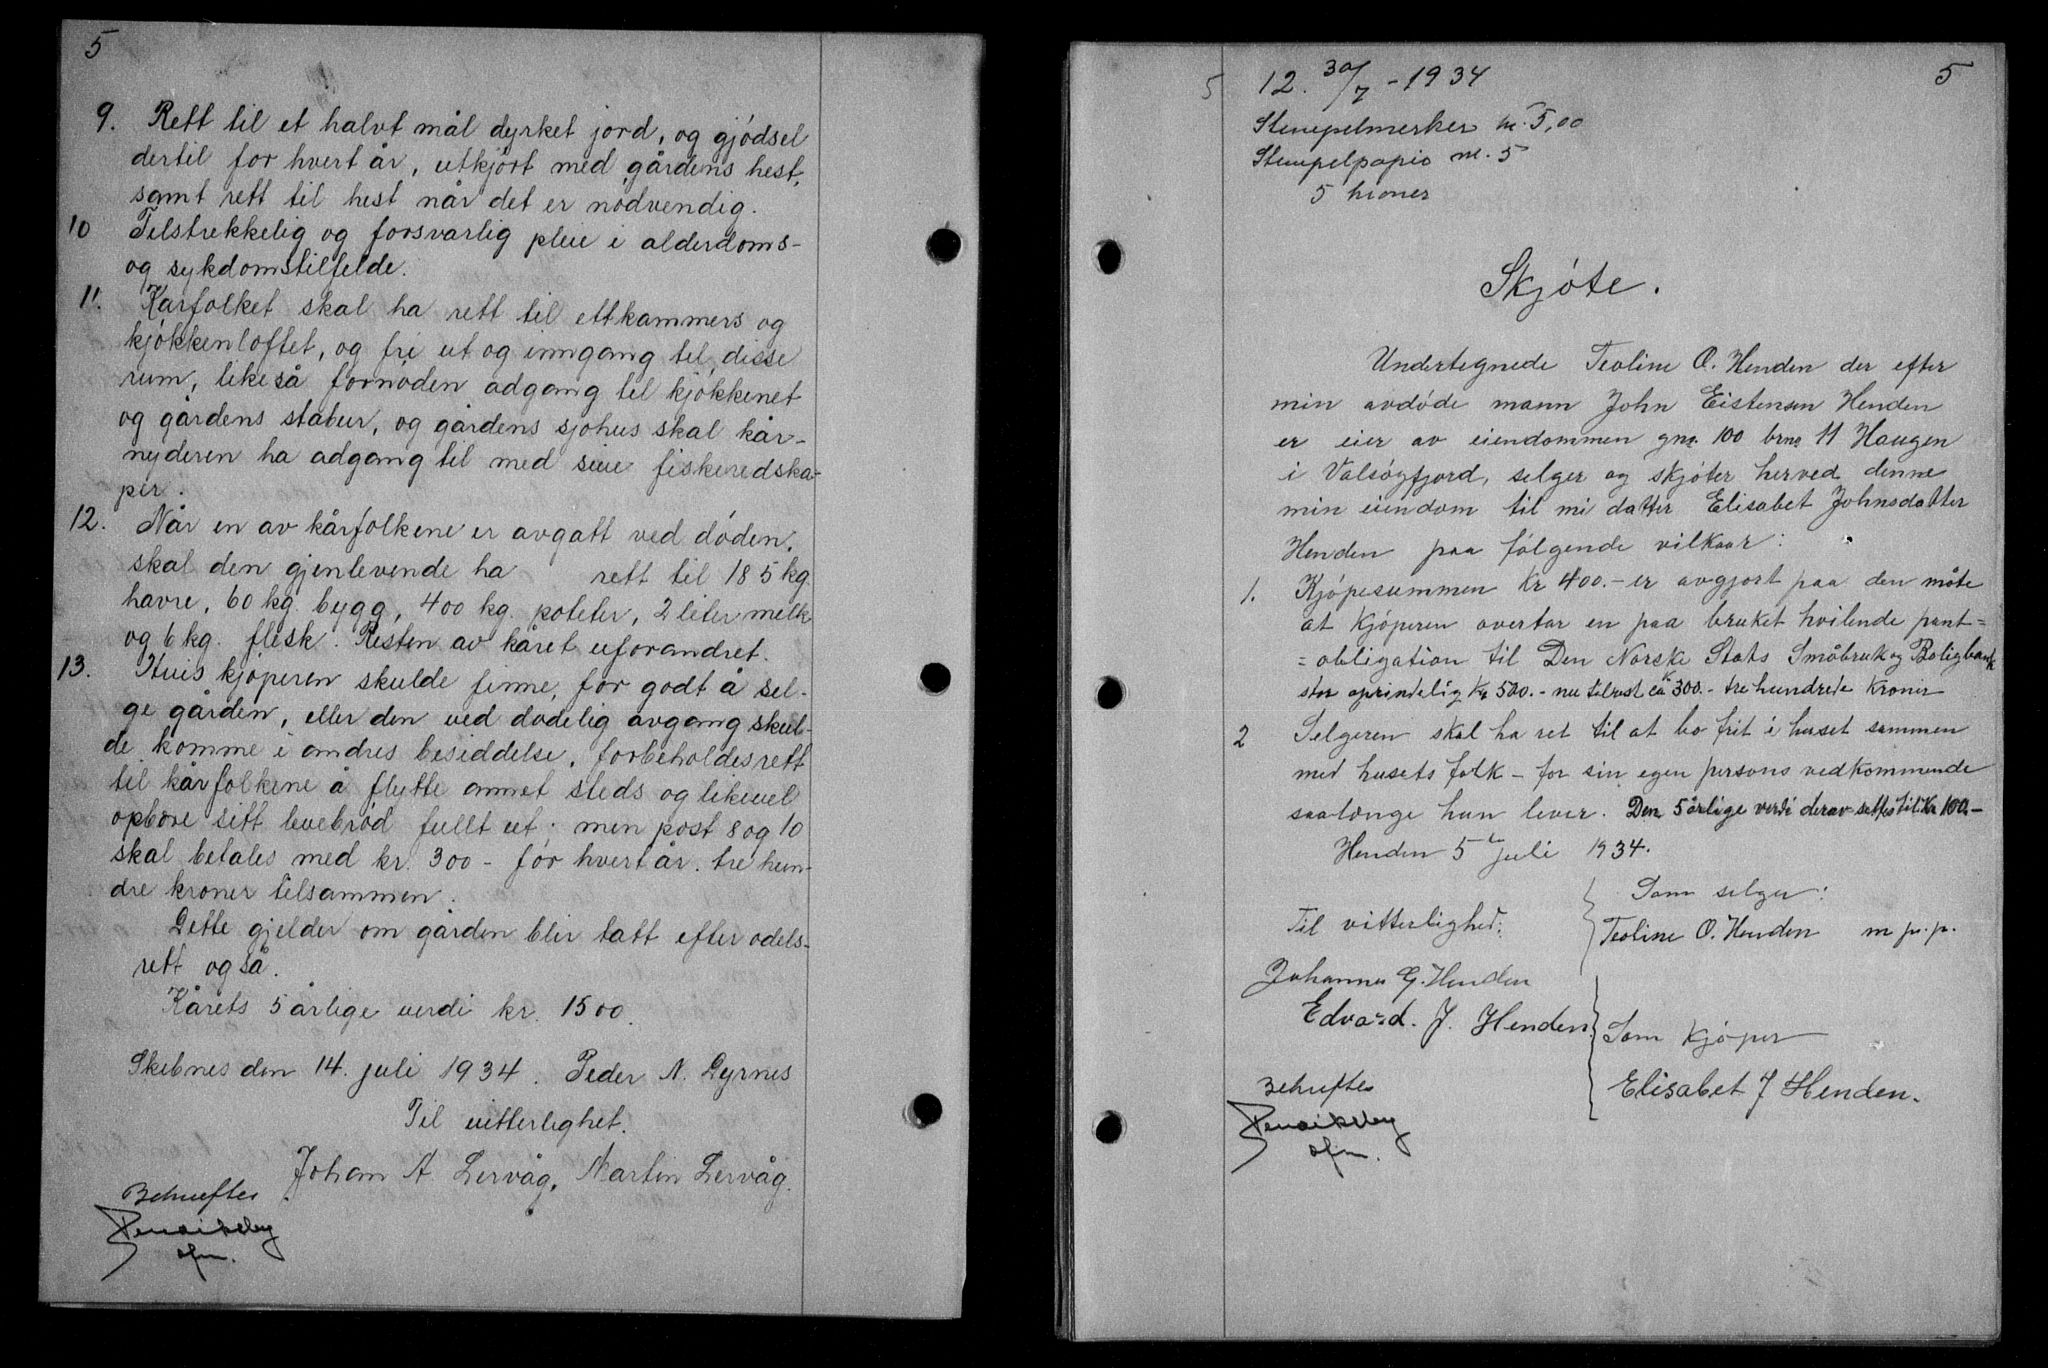 5
9. Rett til et halvt mål dyrket jord, og gjödsel
dertil for hvert år, utkjört med gårdens hest,
samt rett til hest når det er nödvendig.
10 Tilstrekkelig og forsvarlig pleie i alderdoms-
og sykdomstilfelde.
11. Kårfolket skal ha rett til ett kammers og
kjökkenloftet, og fri ut og inngang til disse
rum, likeså fornöden adgang til kjökkenet
og gårdens stabur, og gårdens sjöhus skal kår-
nyderen ha adgang til med sine fiskeredska-
per.
12. Når en av kårfolkene er avgått ved döden,
skal den gjenlevende ha rett til 185 kg.
havre, 60 kg. bygg, 400 kg. poteter, 2 liter melk
og 6 kg. flesk. Resten av kåret uforandret.
13. Hvis kjöperen skulde finne for godt å sel-
ge gården, eller den ved dödelig avgang skul-
de komme i andres besiddelse, forbeholdes rett
til kårfolkene å flytte annet steds og likevel
opbære sitt levebröd fullt ut; men post 8 og 10
skal betales med kr. 300 - for hvert år. tre hun-
dre kroner tilsammen.
Dette gjelder om gården blir tatt efter odels-
rett også.
Kårets 5 årlige verdi kr. 1500.
Skebnes den 14. juli 1934. Peder N. Dyrnes
Til vitterlighet.
Johan A Lervåg, Martin Lervåg.
Bekreftes
ofm.
5
12. 30/7 - 1934
5
Stempelmerker kr. 5,00
Stempelpapir kr. 5
5 kroner
Skjöte.
Undertegnede Teoline O. Henden der efter
min avdöde mann John Eistensen Henden
er eier av eiendommen gnr. 100 brnr 11 Haugen
i Valsöyfjord, selger og skjöter herved denne
min eiendom til mi datter Elisabet Johnsdatter
Henden paa fölgende vilkaar:
1. Kjöpesummen Kr 400.- er avgjort paa den måte
at Kjöperen overtar en paa bruket hvilende pant=
=obligation til Den Norske Stats Småbruk og Boligbank
stor oprindelig Kr 500.- nu tilrest ca K 300.- tre hundrede Kroner
2 Selgeren skal ha ret til at bo frit i huset sammen
med husets folk - for sin egen persons vedkommende
saalænge hun lever. Den 5 årlige verdi derav settes til Kr 100.-
Henden 5 juli 1934.
Som selger:
Til vitterlighed:
Teoline O. Henden m p.p.
Johannes G. Henden
Edvard. J. Henden
Som Kjöper
Bekreftes
Elisabet J Henden.
ofm.